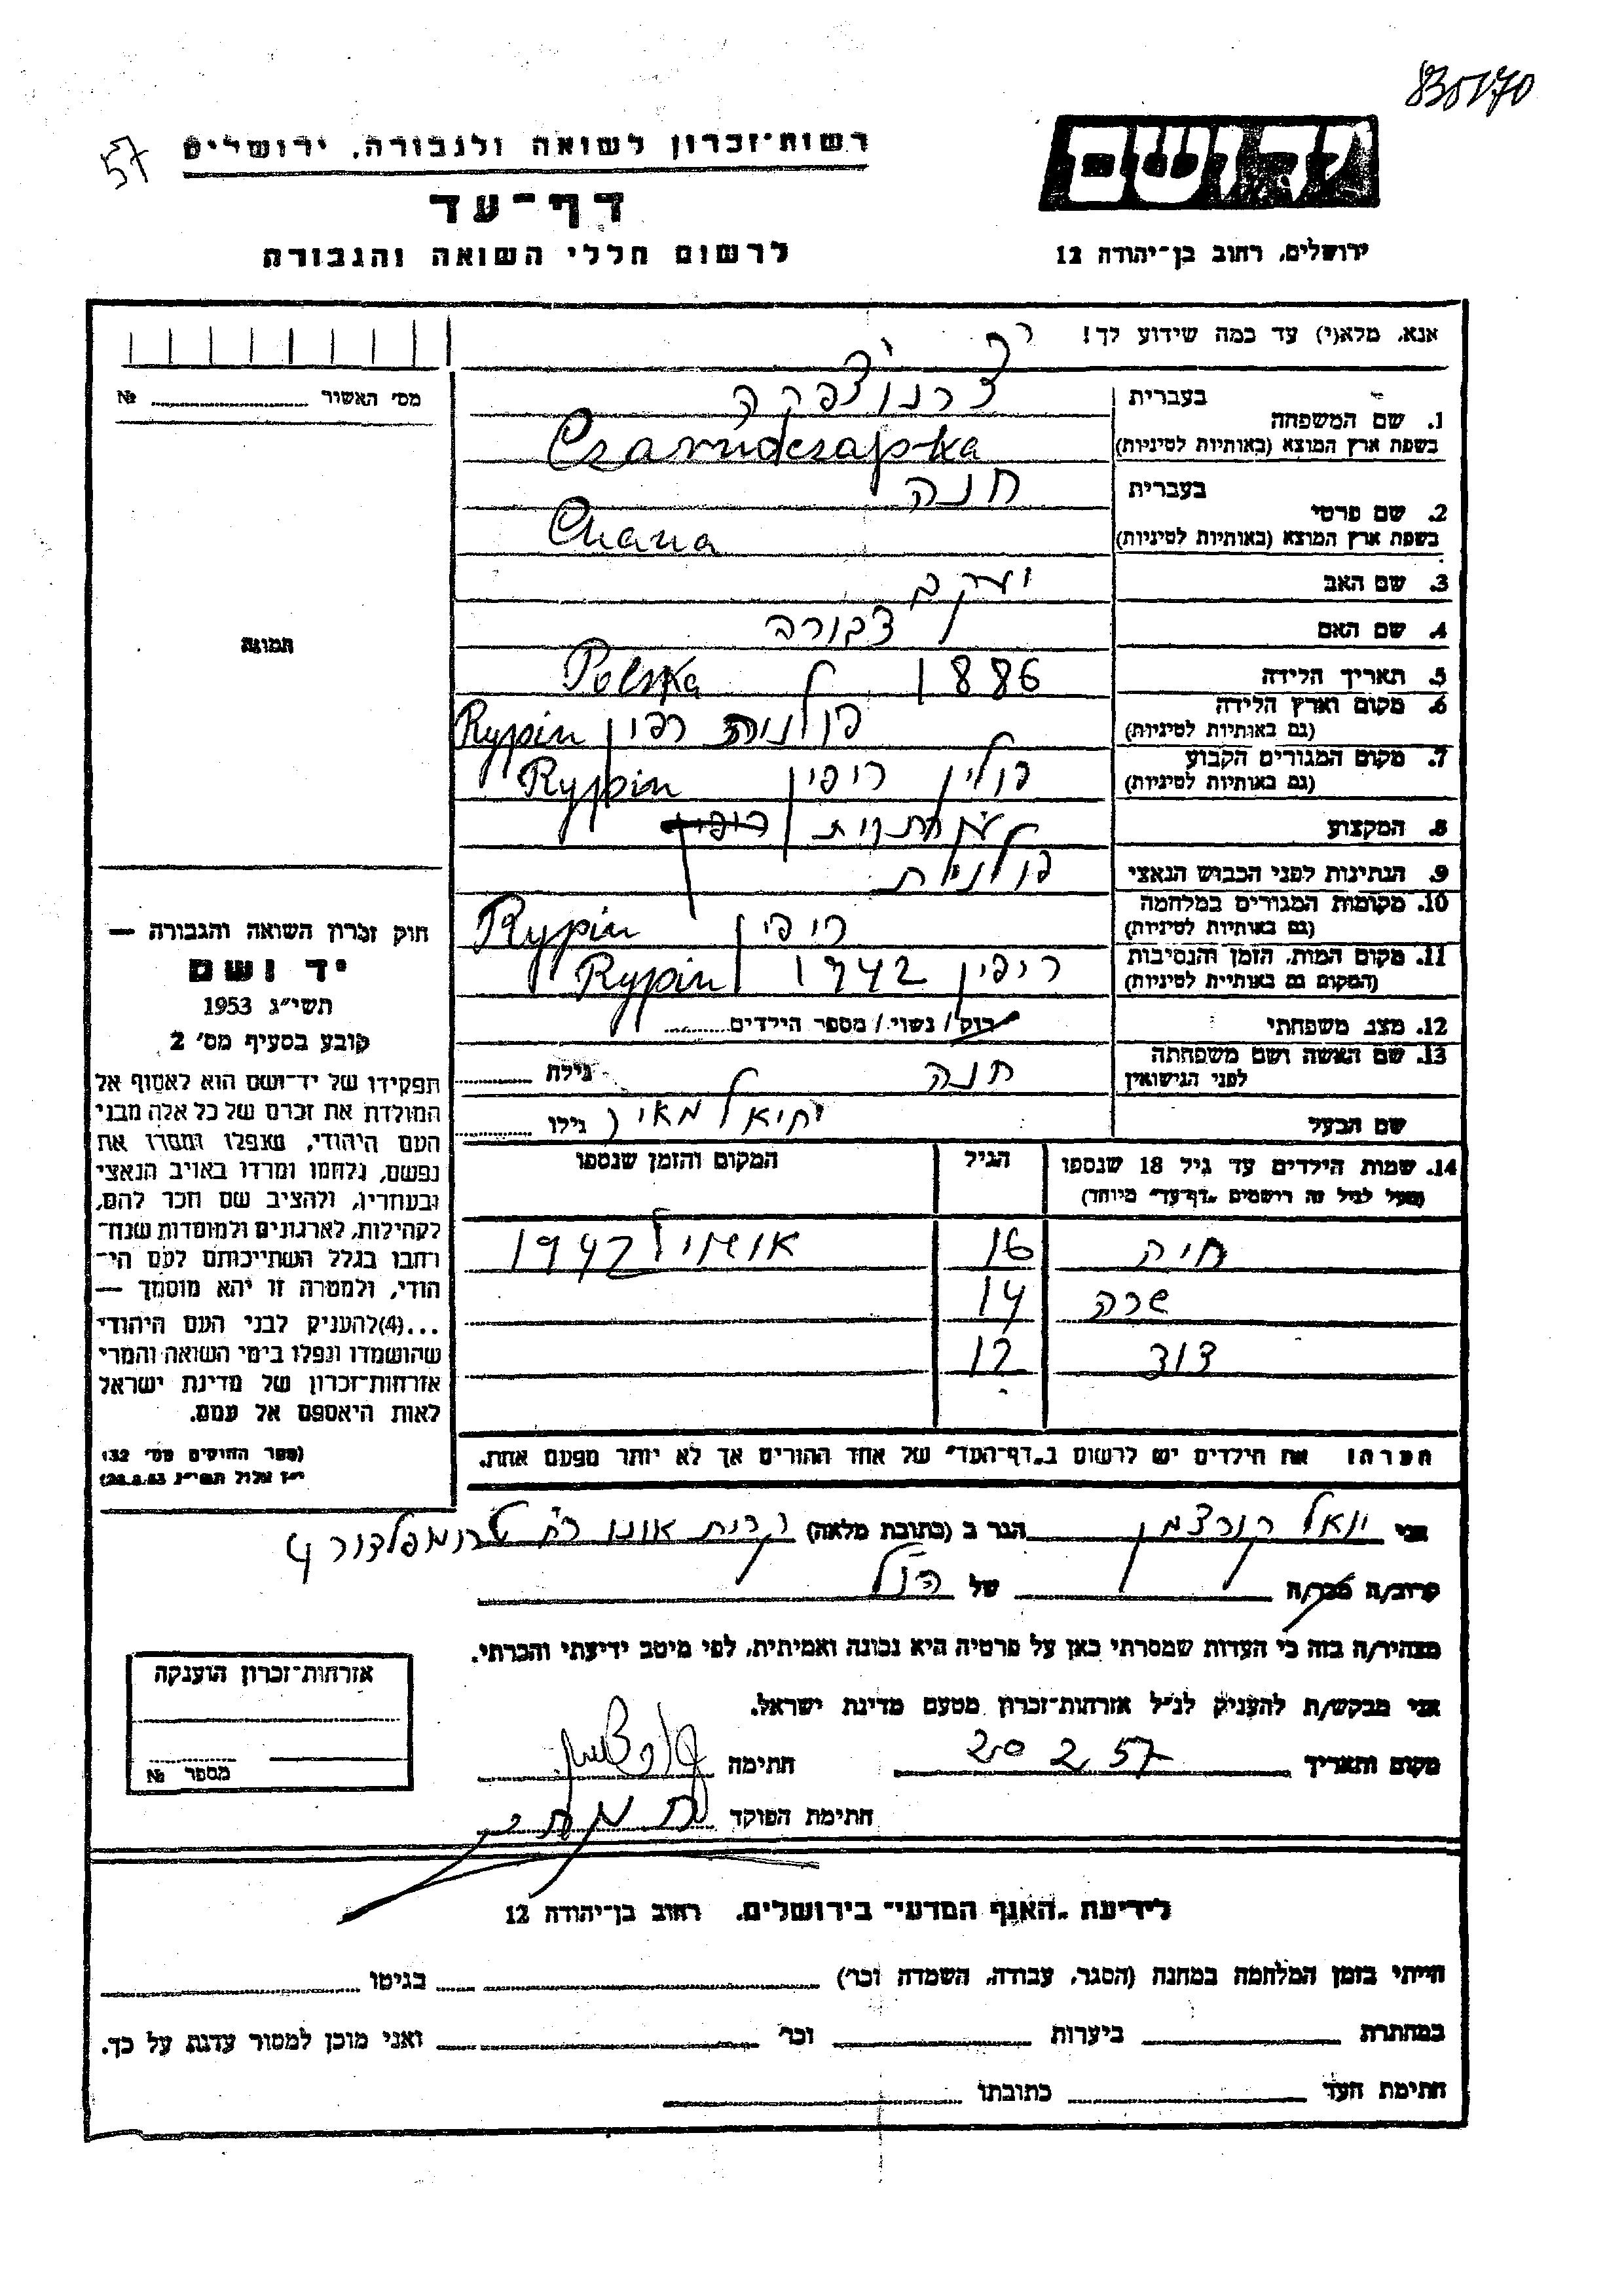 830570
57
יד ושם
רשות־זכרון לשואה ולגבורה, ירושלים
דף־עד
לרשום חללי השואה והגבורה
ירושלים, רחוב בן־יהודה 12
אנא, מלא(י) עד כמה שידוע לך!
מס׳ האשור № 
תמונה
1. שם המשפחה
בעברית
בשפת ארץ המוצא (באותיות לטיניות)
Czarnoczapka
2. שם פרטי
בעברית חנה
בשפת ארץ המוצא (באותיות לטיניות) Chana
3. שם האב יעקב
4. שם האם דבורה
5. תאריך הלידה 1886 Polska
6. מקום וארץ הלידה
(גם באותיות לטיניות) פולניה רפין Rypin
7. מקום המגורים הקבוע
(גם באותיות לטיניות) פולין ריפין Rypin
8. המקצוע
9. הנתינות לפני הכבוש הנאצי פולנית
10. מקומות המגורים במלחמה
(גם באותיות לטיניות) ריפין Rypin
11. מקום המות, הזמן והנסיבות
(המקום גם באותיות לטיניות) ריפין 1942 Rypin
12. מצב משפחתי רוק / נשוי / מספר הילדים
13. שם האשה ושם משפחתה
לפני הנישואין חנה גילה
שם הבעל יחיאל מאיר גילו
14. שמות הילדים עד גיל 18 שנספו הגיל המקום והזמן שנספו
(מעל לגיל זה רושמים „דף־עד״ מיוחד)
חיה 16 1942
שרה 14
דוד 12
הערה: את הילדים יש לרשום ב„דף־העד״ של אחד ההורים אך לא יותר מפעם אחת.
חוק זכרון השואה והגבורה —
יד ושם
תשי״ג 1953
קובע בסעיף מס׳ 2
תפקידו של יד־ושם הוא לאסוף אל
המולדת את זכרם של כל אלה מבני
העם היהודי, שנפלו ומסרו את
נפשם, נלחמו ומרדו באויב הנאצי
ובעוזריו, ולהציב שם וזכר להם,
לקהילות, לארגונים ולמוסדות שנח־
רבו בגלל השתייכותם לעם הי־
הודי, ולמטרה זו יהא מוסמך —
...(4) להעניק לבני העם היהודי
שהושמדו ונפלו בימי השואה והמרי
אזרחות־זכרון של מדינת ישראל
לאות היאספם אל עמם.
(ספר החוקים מס׳ 132
י״ז אלול תשי״ג 28.8.53)
אני יואל קורצמן הגר ב (כתובת מלאה) קרית אונו רח׳ טרומפלדור 4
קרוב/ה מכר/ה של הנ״ל
מצהיר/ה בזה כי העדות שמסרתי כאן על פרטיה היא נכונה ואמיתית, לפי מיטב ידיעתי והכרתי.
אני מבקש/ת להעניק לנ״ל אזרחות־זכרון מטעם מדינת ישראל.
מקום ותאריך 20 2 57 חתימה
חתימת הפוקד
אזרחות־זכרון הוענקה
מספר №
לידיעת „האגף המדעי״ בירושלים, רחוב בן־יהודה 12
הייתי בזמן המלחמה במחנה (הסגר, עבודה, השמדה וכו׳) בגיטו
במחתרת ביערות וכו׳ ואני מוכן למסור עדות על כך.
חתימת העד כתובתו